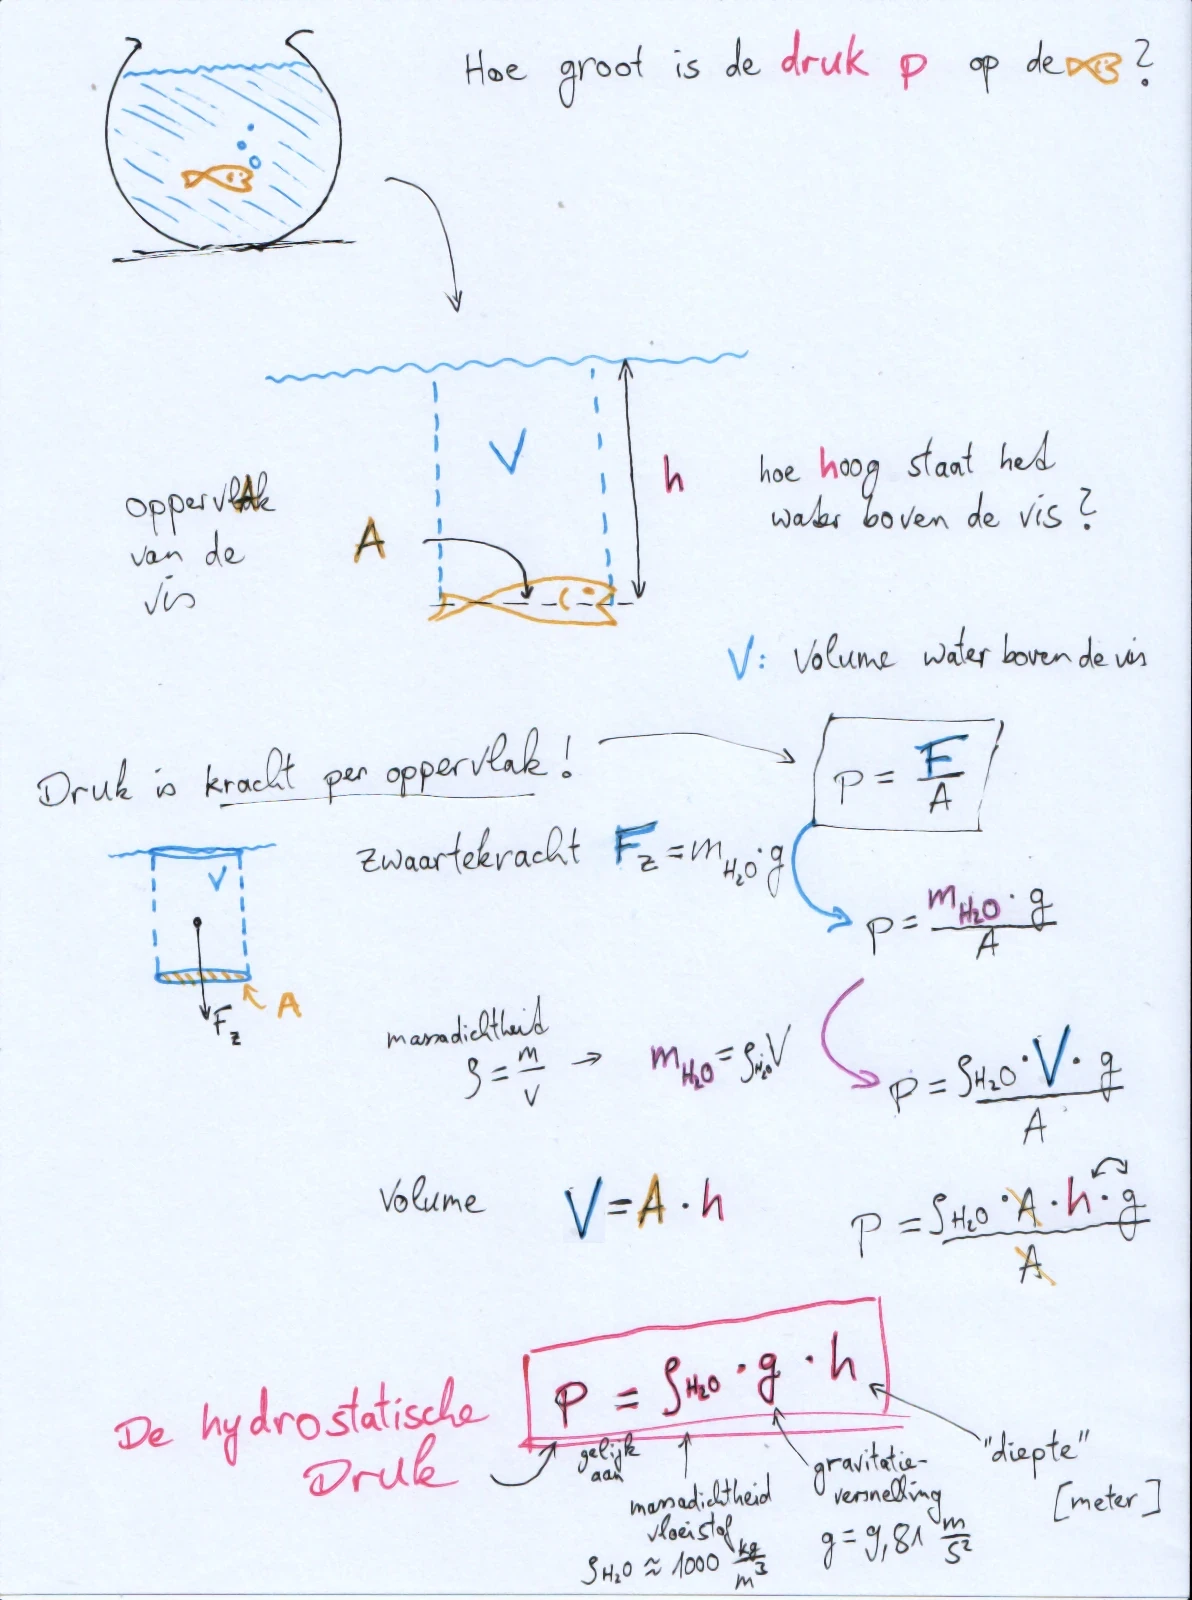 Hoe groot is de druk p op de ?
V
h
hoe hoog staat het
water boven de vis?
oppervlak
van de
vis
A
V: Volume water boven de vis
Druk is kracht per oppervlak!
p = F/A
zwaartekracht F_z = m_H2O · g
V
p = m_H2O · g / A
A
F_z
massadichtheid
ρ = m/V → m_H2O = ρ_H2O V
p = ρ_H2O · V · g / A
Volume V = A · h
p = ρ_H2O · A · h · g / A
p = ρ_H2O · g · h
De hydrostatische
Druk
gelijk
aan
massadichtheid
vloeistof
ρ_H2O ≈ 1000 kg/m³
gravitatie-
versnelling
g = 9,81 m/s²
"diepte"
[meter]